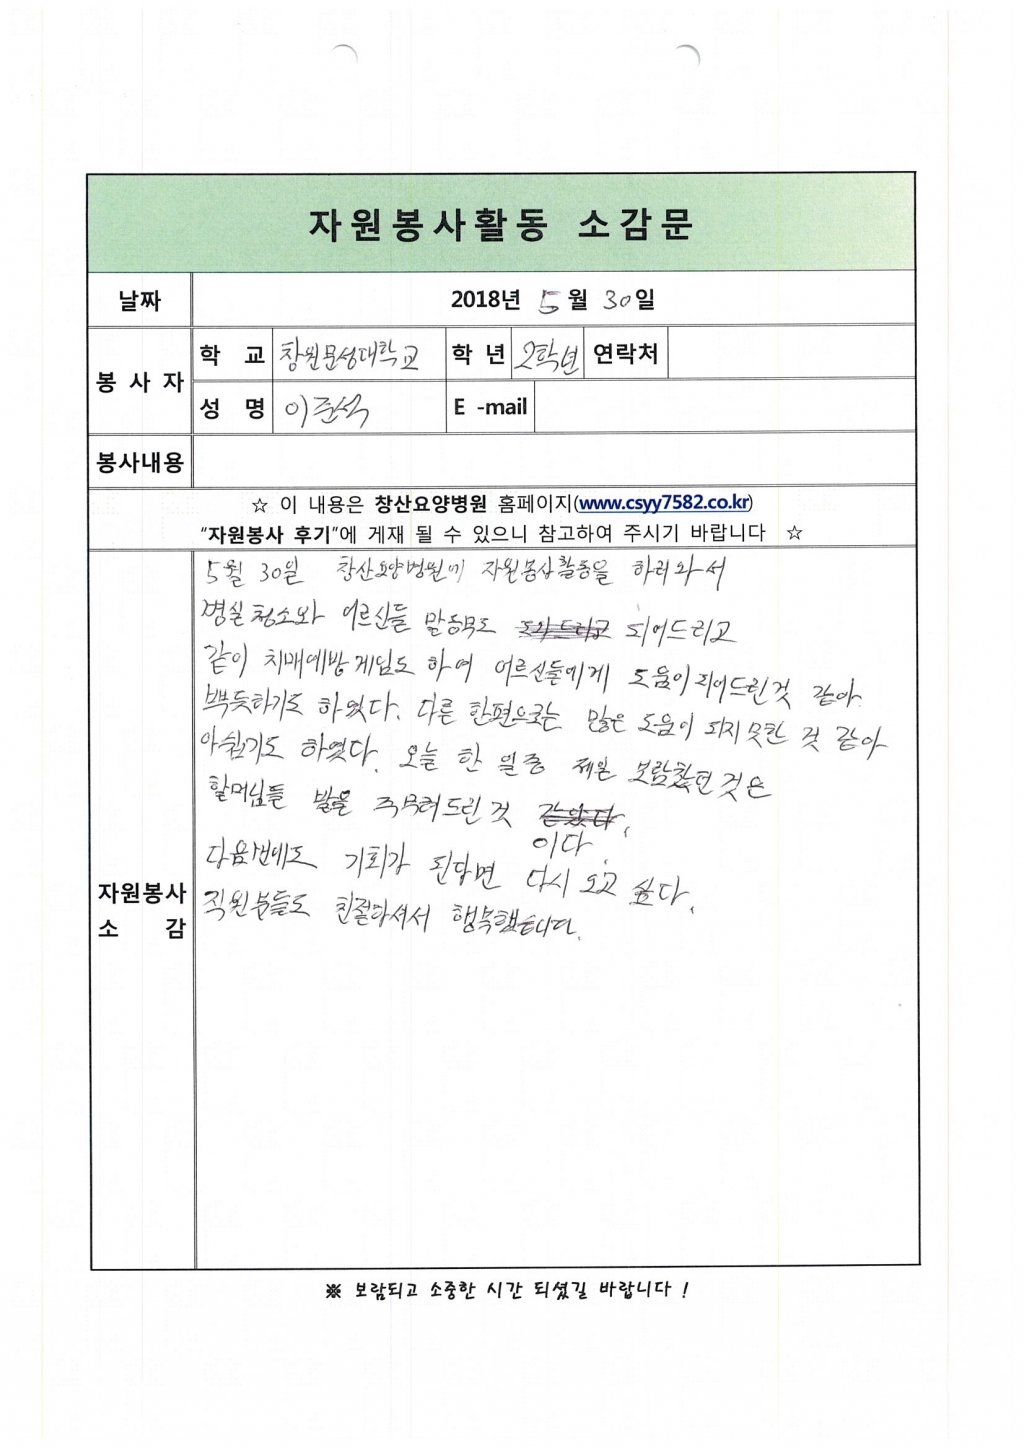 자원봉사활동 소감문
날짜 2018년 5월 30일
봉사자 학 교 창원문성대학교 학년 2학년 연락처
성 명 이준석 E -mail
봉사내용
☆ 이 내용은 창산요양병원 홈페이지(www.csyy7582.co.kr)
"자원봉사 후기"에 게재 될 수 있으니 참고하여 주시기 바랍니다 ☆
자원봉사
소 감
5월 30일 창산요양병원에 자원봉사활동을 하러와서
병실청소와 어르신들 말동무도 되어드리고
같이 치매예방게임도 하여 어르신들에게 도움이 되어드린것 같아
뿌듯하기도 하였다. 다른 한편으로는 많은 도움이 되지 못한 것 같아
아쉽기도 하였다. 오늘 한 일중 제일 보람찼던 것은
할머님들 발을 주무려드린 것
이다.
다음번에도 기회가 된다면 다시 오고 싶다.
직원분들도 친절하셔서 행복했습니다.
※ 보람되고 소중한 시간 되셨길 바랍니다 !